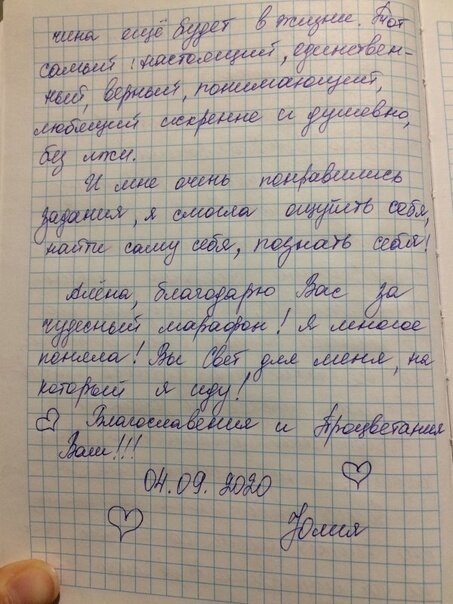 чина ещё будет в жизни. Тот
самый настоящий, единствен-
ный, верный, понимающий,
любящий искренне и душевно,
без лжи.
И мне очень понравились
задания, я смогла ощутить себя,
найти саму себя, познать себя!
Алёна, благодарю Вас за
чудесный марафон! Я многое
поняла! Вы Свет для меня, на
который я иду!
♡ Благославения и Процветания
Вам!!!
04.09.2020 ♡
♡ Юлия